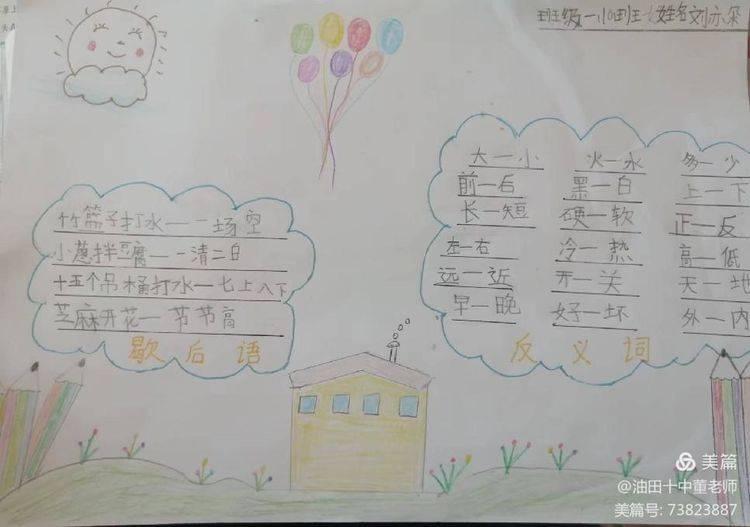 班级一小班 姓名刘亦朵
竹篮子打水——一场空
小葱拌豆腐——一清二白
十五个吊桶打水—七上八下
芝麻开花—节节高
歇后语
大—小 火—水 多—少
前—后 黑—白 上—下
长—短 硬—软 正—反
左—右 冷—热 高—低
远—近 开—关 天—地
早—晚 好—坏 外—内
反义词
美篇
@油田十中董老师
美篇号: 73823887